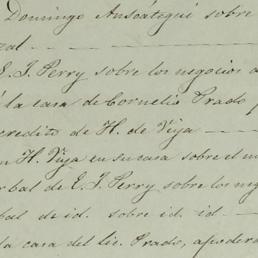 Domingo Ansoátegui sobre
zal
E. J. Perry sobre los negocios a
á la casa de Cornelio Prado p
credito de H. de Veja
n H. Veja en su casa sobre el m
rbal de E. J. Perry sobre los neg
bal de id. sobre id. id.
la casa del lic. Prado, apodera